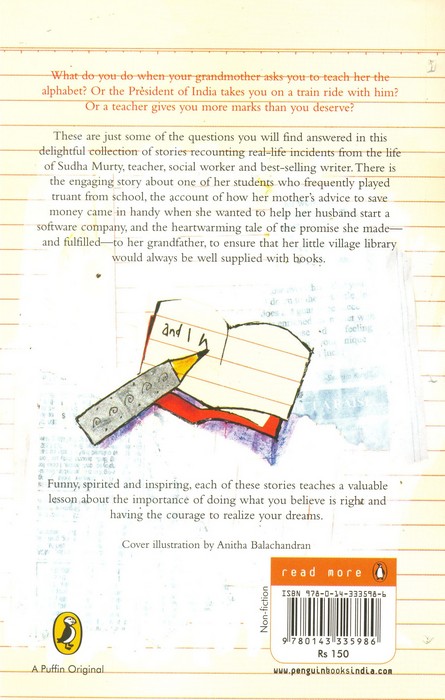 What do you do when your grandmother asks you to teach her the
alphabet? Or the President of India takes you on a train ride with him?
Or a teacher gives you more marks than you deserve?
These are just some of the questions you will find answered in this
delightful collection of stories recounting real-life incidents from the life
of Sudha Murty, teacher, social worker and best-selling writer. There is
the engaging story about one of her students who frequently played
truant from school, the account of how her mother's advice to save
money came in handy when she wanted to help her husband start a
software company, and the heartwarming tale of the promise she made—
and fulfilled—to her grandfather, to ensure that her little village library
would always be well supplied with books.
and I h
Funny, spirited and inspiring, each of these stories teaches a valuable
lesson about the importance of doing what you believe is right and
having the courage to realize your dreams.
Cover illustration by Anitha Balachandran
read more
Non-fiction
ISBN 978-0-14-333598-6
9 780143 335986
Rs 150
A Puffin Original
www.penguinbooksindia.com